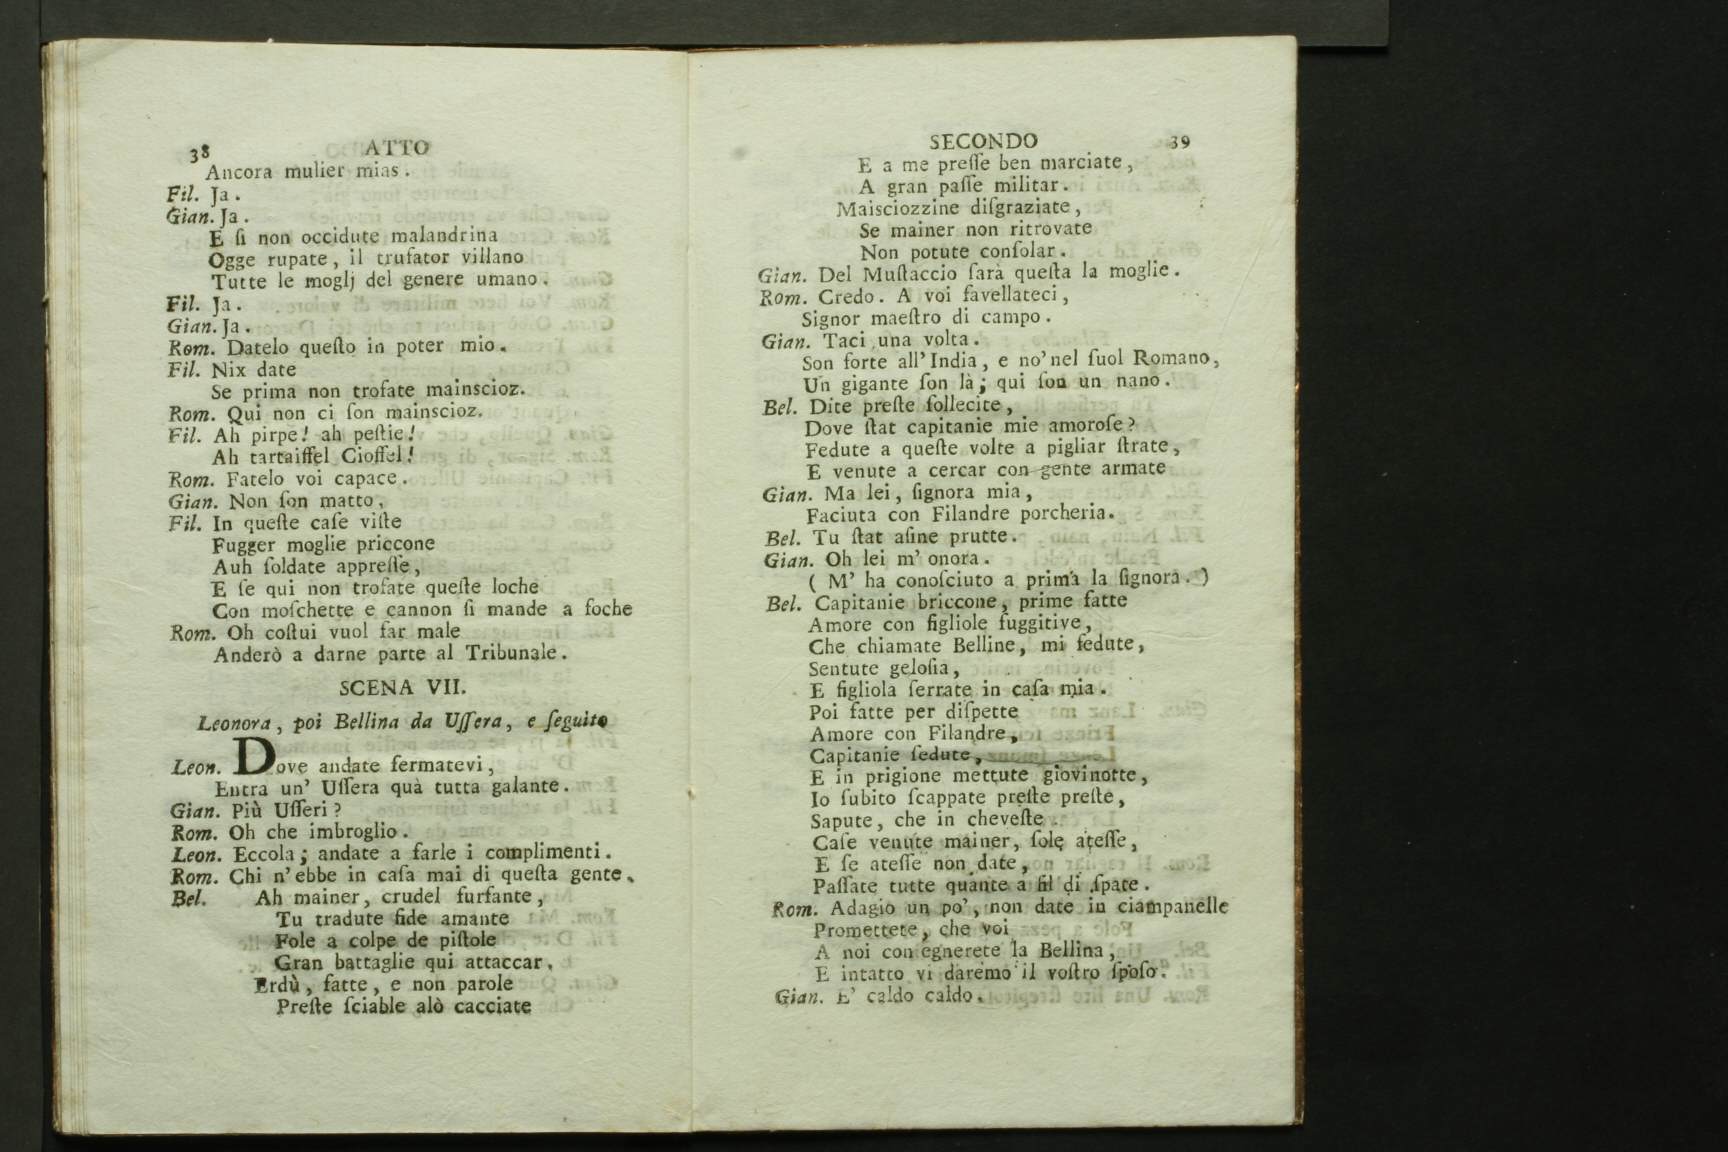 38 ATTO
Ancora mulier mias.
Fil. Ja.
Gian. Ja.
E ſi non occidute malandrina
Ogge rupate, il trufator villano
Tutte le moglj del genere umano.
Fil. Ja.
Gian. Ja.
Rom. Datelo queſto in poter mio.
Fil. Nix date
Se prima non trofate mainscioz.
Rom. Qui non ci ſon mainscioz.
Fil. Ah pirpe! ah peſtie!
Ah tartaiffel Cioffel!
Rom. Fatelo voi capace.
Gian. Non ſon matto,
Fil. In queſte caſe viſte
Fugger moglie priccone
Auh ſoldate appreſſe,
E ſe qui non trofate queſte loche
Con moſchette e cannon ſi mande a foche
Rom. Oh coſtui vuol far male
Anderò a darne parte al Tribunale.
SCENA VII.
Leonora, poi Bellina da Uſſera, e ſeguito
Leon. Dove andate fermatevi,
Entra un' Uſſera quà tutta galante.
Gian. Più Uſſeri?
Rom. Oh che imbroglio.
Leon. Eccola; andate a farle i complimenti.
Rom. Chi n'ebbe in caſa mai di queſta gente.
Bel. Ah mainer, crudel furfante,
Tu tradute fide amante
Fole a colpe de piſtole
Gran battaglie qui attaccar.
Erdù, fatte, e non parole
Preſte ſciable alò cacciate
SECONDO 39
E a me preſſe ben marciate,
A gran paſſe militar.
Maisciozzine diſgraziate,
Se mainer non ritrovate
Non potute conſolar.
Gian. Del Muſtaccio ſarà queſta la moglie.
Rom. Credo. A voi favellateci,
Signor maeſtro di campo.
Gian. Taci una volta.
Son forte all'India, e no'nel ſuol Romano,
Un gigante ſon là; qui ſon un nano.
Bel. Dite preſte ſollecite,
Dove ſtat capitanie mie amoroſe?
Fedute a queſte volte a pigliar ſtrate,
E venute a cercar con gente armate
Gian. Ma lei, ſignora mia,
Faciuta con Filandre porcheria.
Bel. Tu ſtat aſine prutte.
Gian. Oh lei m' onora.
( M' ha conoſciuto a prima la ſignora. )
Bel. Capitanie briccone, prime fatte
Amore con figliole fuggitive,
Che chiamate Belline, mi fedute,
Sentute geloſia,
E figliola ſerrate in caſa mia.
Poi fatte per diſpette
Amore con Filandre,
Capitanie fedute,
E in prigione mettute giovinotte,
Io ſubito ſcappate preſte preſte,
Sapute, che in cheveſte
Caſe venute mainer, ſole ateſſe,
E ſe ateſſe non date,
Paſſate tutte quante a fil di ſpate.
Rom. Adagio un po', non date in ciampanelle
Promettete, che voi
A noi con egnerete la Bellina,
E intatto vi daremo il voſtro ſpoſo.
Gian. E' caldo caldo.